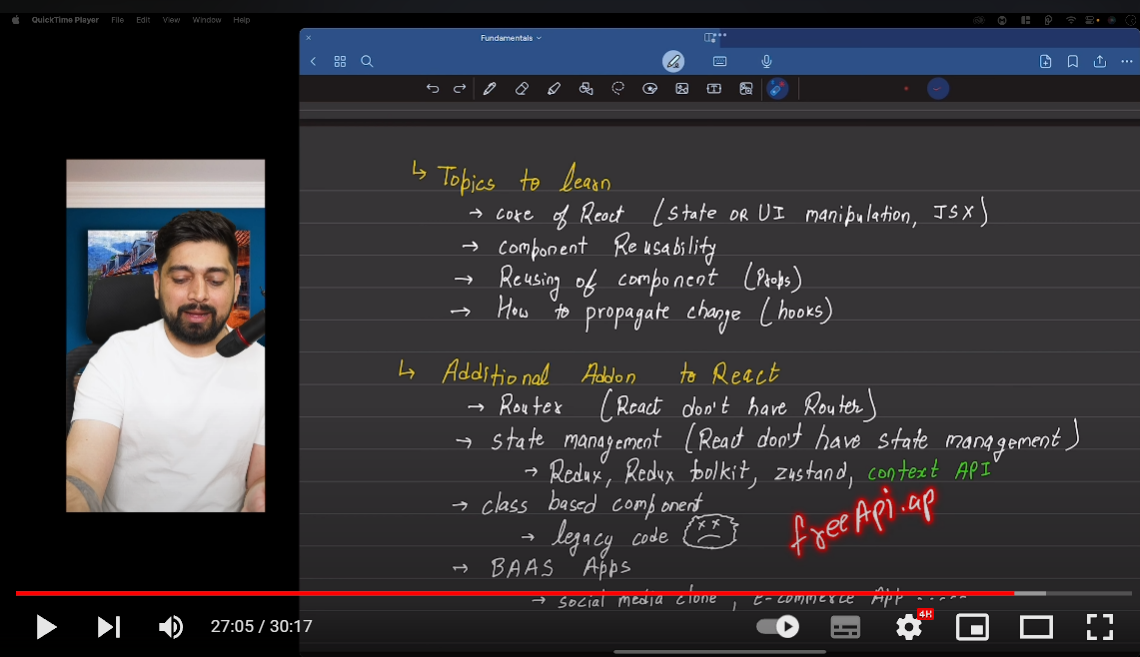 QuickTime Player File Edit View Window Help
Fundamentals
↳ Topics to learn
→ core of React (state OR UI manipulation, JSX)
→ component Reusability
→ Reusing of component (Props)
→ How to propagate change (hooks)
↳ Additional Addon to React
→ Router (React don't have Router)
→ state management (React don't have state management)
→ Redux, Redux toolkit, zustand, context API
→ class based component
→ legacy code
freeApi.ap
→ BAAS Apps
→ social media clone, E-commerce App .....
27:05 / 30:17
4K